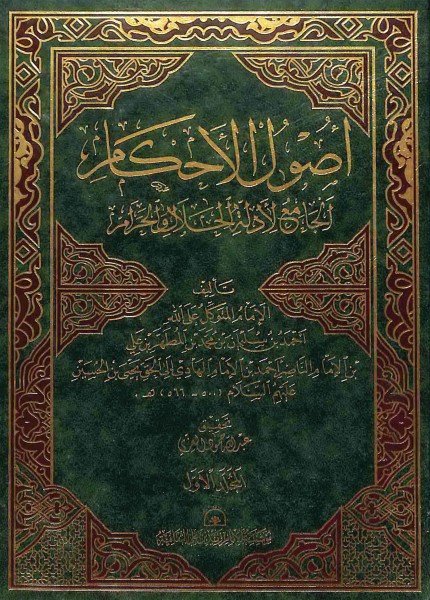 أصول الأحكام
الجامع لأدلة الحلال والحرام
تأليف
الإمام المتوكل على الله
أحمد بن سليمان بن محمد بن المطهر بن علي
بن الإمام الناصر أحمد بن الإمام الهادي إلى الحق يحيى بن الحسين
عليهم السلام (٥٠٠ - ٥٦٦) هـ .
تحقيق
عبدالله
المجلد الأول